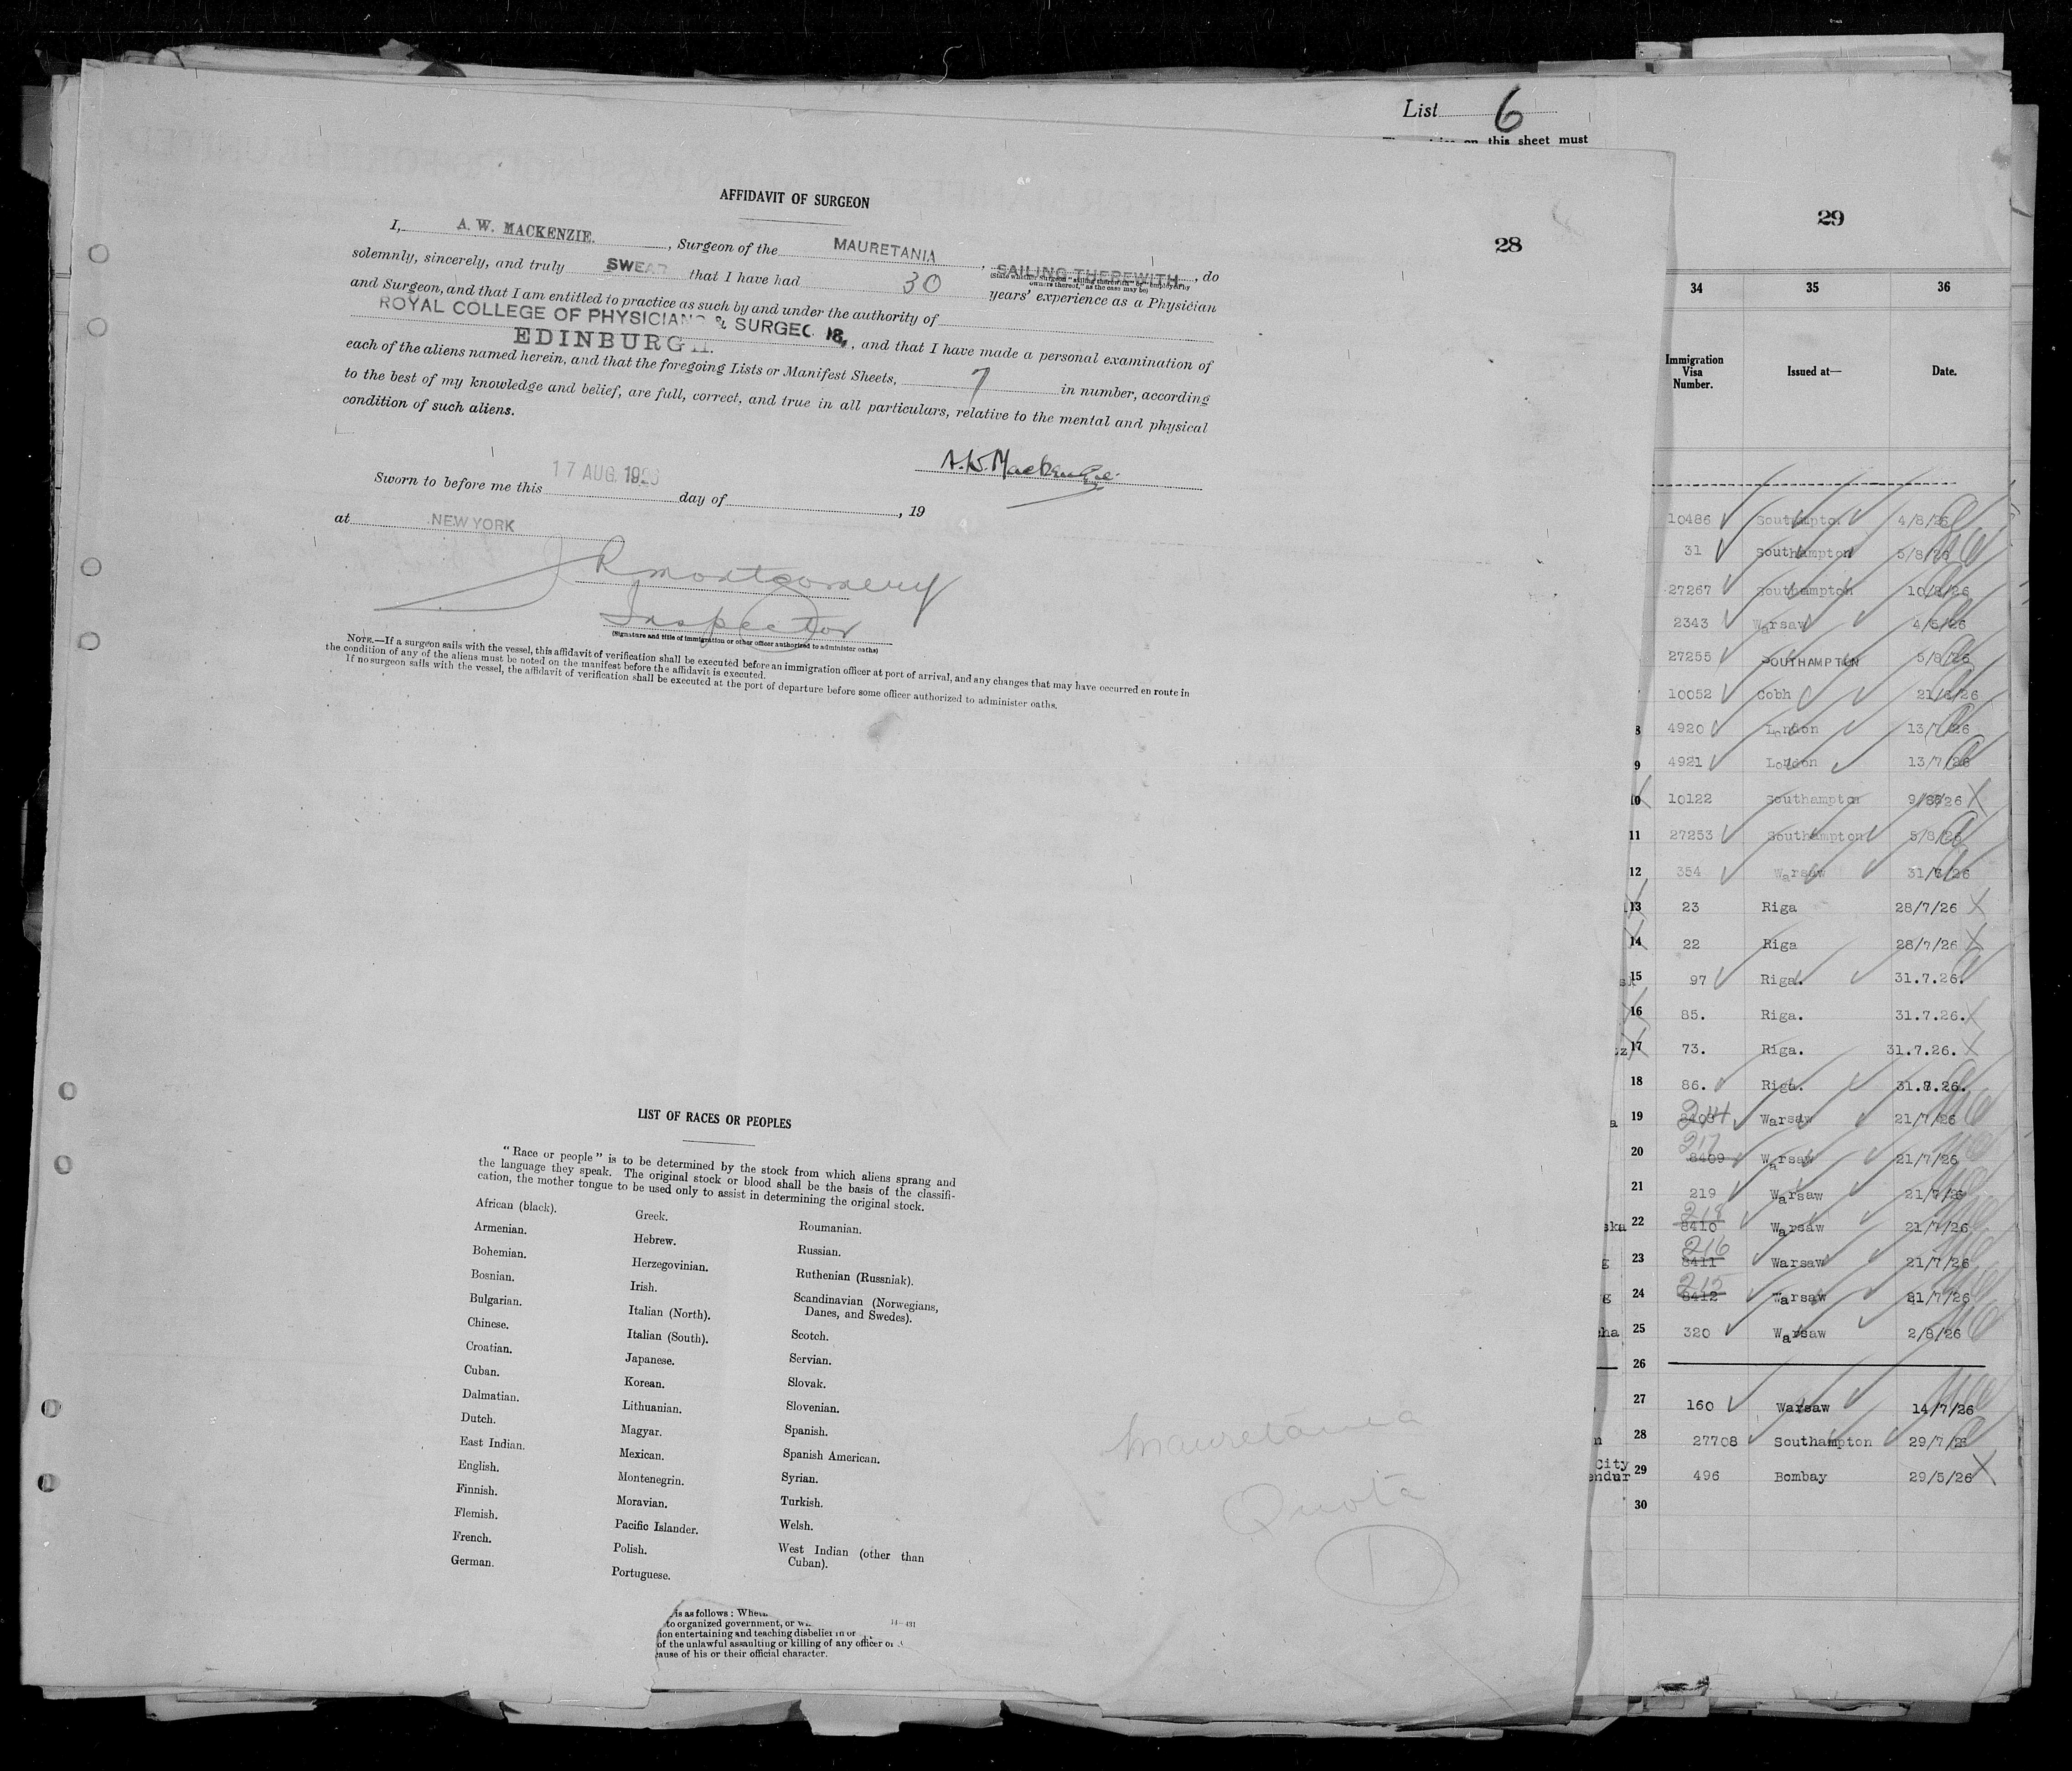 List 6
on this sheet must
29
28
AFFIDAVIT OF SURGEON
I, A. W. MACKENZIE. , Surgeon of the MAURETANIA , SAILING THEREWITH , do
(State whether surgeon "sailing therewith" or "employed by owners thereof," as the case may be)
solemnly, sincerely, and truly SWEAR that I have had 30 years' experience as a Physician
and Surgeon, and that I am entitled to practice as such by and under the authority of
ROYAL COLLEGE OF PHYSICIANS & SURGEO
EDINBURGH. , and that I have made a personal examination of
each of the aliens named herein, and that the foregoing Lists or Manifest Sheets, 7 in number, according
to the best of my knowledge and belief, are full, correct, and true in all particulars, relative to the mental and physical
condition of such aliens.
A.W. Mackenzie
Sworn to before me this 17 AUG. 1926 day of , 19
at NEW YORK
J R Montgomery
Inspector
(Signature and title of immigration or other officer authorized to administer oaths)
NOTE.—If a surgeon sails with the vessel, this affidavit of verification shall be executed before an immigration officer at port of arrival, and any changes that may have occurred en route in
the condition of any of the aliens must be noted on the manifest before the affidavit is executed.
If no surgeon sails with the vessel, the affidavit of verification shall be executed at the port of departure before some officer authorized to administer oaths.
LIST OF RACES OR PEOPLES
"Race or people" is to be determined by the stock from which aliens sprang and
the language they speak. The original stock or blood shall be the basis of the classifi-
cation, the mother tongue to be used only to assist in determining the original stock.
African (black).
Armenian.
Bohemian.
Bosnian.
Bulgarian.
Chinese.
Croatian.
Cuban.
Dalmatian.
Dutch.
East Indian.
English.
Finnish.
Flemish.
French.
German.
Greek.
Hebrew.
Herzegovinian.
Irish.
Italian (North).
Italian (South).
Japanese.
Korean.
Lithuanian.
Magyar.
Mexican.
Montenegrin.
Moravian.
Pacific Islander.
Polish.
Portuguese.
Roumanian.
Russian.
Ruthenian (Russniak).
Scandinavian (Norwegians,
Danes, and Swedes).
Scotch.
Servian.
Slovak.
Slovenian.
Spanish.
Spanish American.
Syrian.
Turkish.
Welsh.
West Indian (other than
Cuban).
Mauretania
Quota
1
is as follows: Whet
to organized government, or
ion entertaining and teaching disbelief in or
of the unlawful assaulting or killing of any officer or
cause of his or their official character.
34 35 36
Immigration Visa Number. Issued at— Date.
10486 Southampton 4/8/26
31 Southampton 5/8/26
27267 Southampton 10/8/26
2343 Warsaw 4/5/26
27255 SOUTHAMPTON 5/8/26
10052 Cobh 21/ /26
8 4920 London 13/7/26
9 4921 London 13/7/26
10 10122 Southampton 9/8/26 X
11 27253 Southampton 5/8/26
12 354 Warsaw 31/ /26
13 23 Riga 28/7/26 X
14 22 Riga 28/7/26 X
15 97 Riga. 31.7.26.
16 85. Riga. 31.7.26. X
17 73. Riga. 31.7.26. X
18 86. Riga. 31.7.26.
19 8408 214 Warsaw 21/7/26
20 8409 217 Warsaw 21/7/26
21 219 Warsaw 21/7/26
ska 22 8410 218 Warsaw 21/7/26
g 23 8411 216 Warsaw 21/7/26
g 24 8412 215 Warsaw 21/7/26
ha 25 320 Warsaw 2/8/26
26
27 160 Warsaw 14/7/26
n 28 27708 Southampton 29/7/26
City
endur 29 496 Bombay 29/5/26 X
30